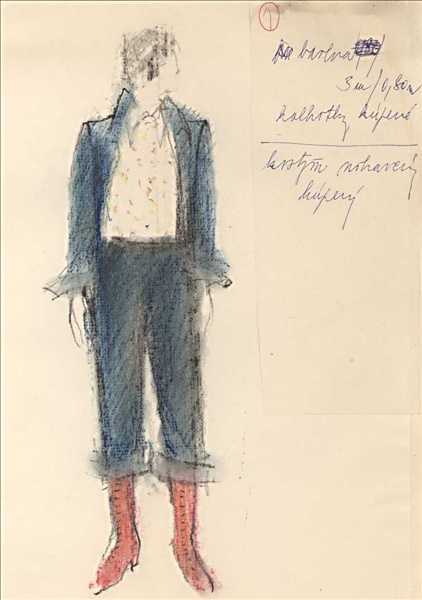 1
bavlna
3 m / 0,80 m
kalhotky kúpené
kostým nohavicový
kúpený